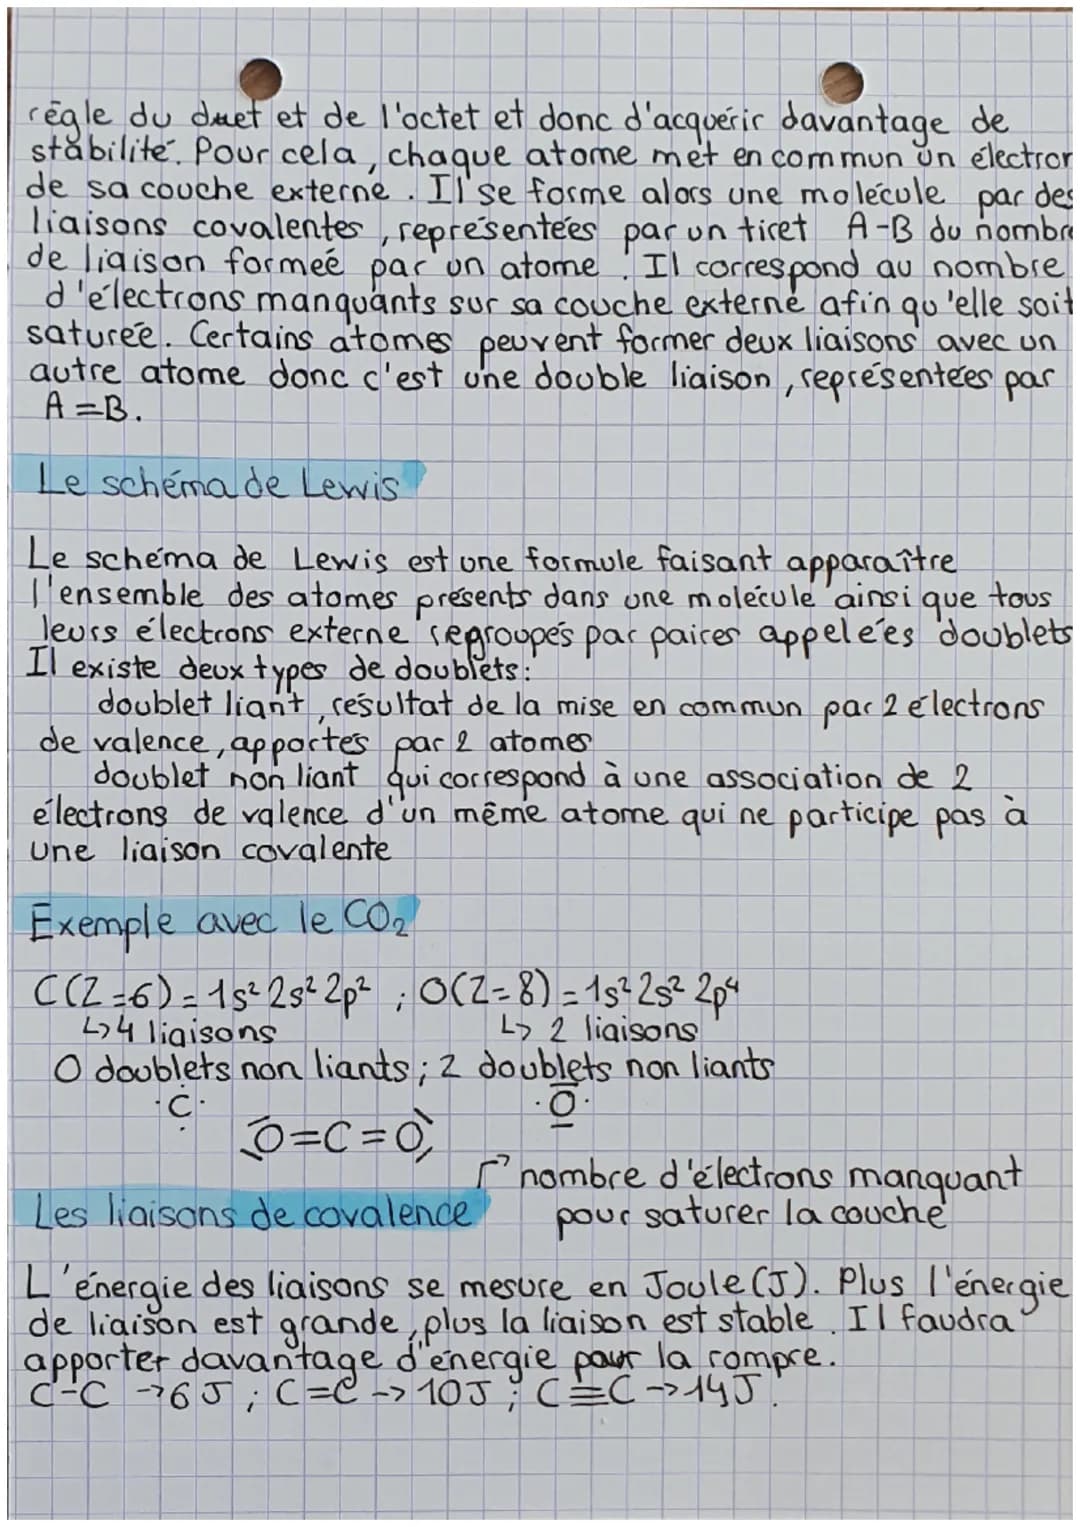 règle du duet et de l'octet et donc d'acquérir davantage de
stabilité. Pour cela, chaque atome met en commun un électron
de sa couche externe. Il se forme alors une molécule par des
liaisons covalentes, représentées par un tiret A-B du nombre
de liaison formeé par un atome. Il correspond au nombre
d'électrons manquants sur sa couche externe afin qu'elle soit
saturée. Certains atomes peuvent former deux liaisons avec un
autre atome donc c'est une double liaison, représentées par
A=B.
Le schéma de Lewis
Le schéma de Lewis est une formule faisant apparaître
l'ensemble des atomes présents dans une molécule ainsi que tous
leurs électrons externe regroupés par paires appelées doublets
Il existe deux types de doublets:
doublet liant, résultat de la mise en commun par 2 électrons
de valence, apportés par 2 atomes
doublet non liant qui correspond à une association de 2
électrons de valence d'un même atome qui ne participe pas à
une liaison covalente
Exemple avec le CO₂
C(Z=6)=1s² 2s² 2p² ; O(Z=8)=1s² 2s² 2p⁴
↳4 liaisons ↳ 2 liaisons
0 doublets non liants; 2 doublets non liants
C O
O=C=O
nombre d'électrons manquant
Les liaisons de covalence pour saturer la couche
L'énergie des liaisons se mesure en Joule (J). Plus l'énergie
de liaison est grande, plus la liaison est stable. Il faudra
apporter davantage d'énergie pour la rompre.
C-C →6J ; C=C → 10J ; C≡C → 14J.